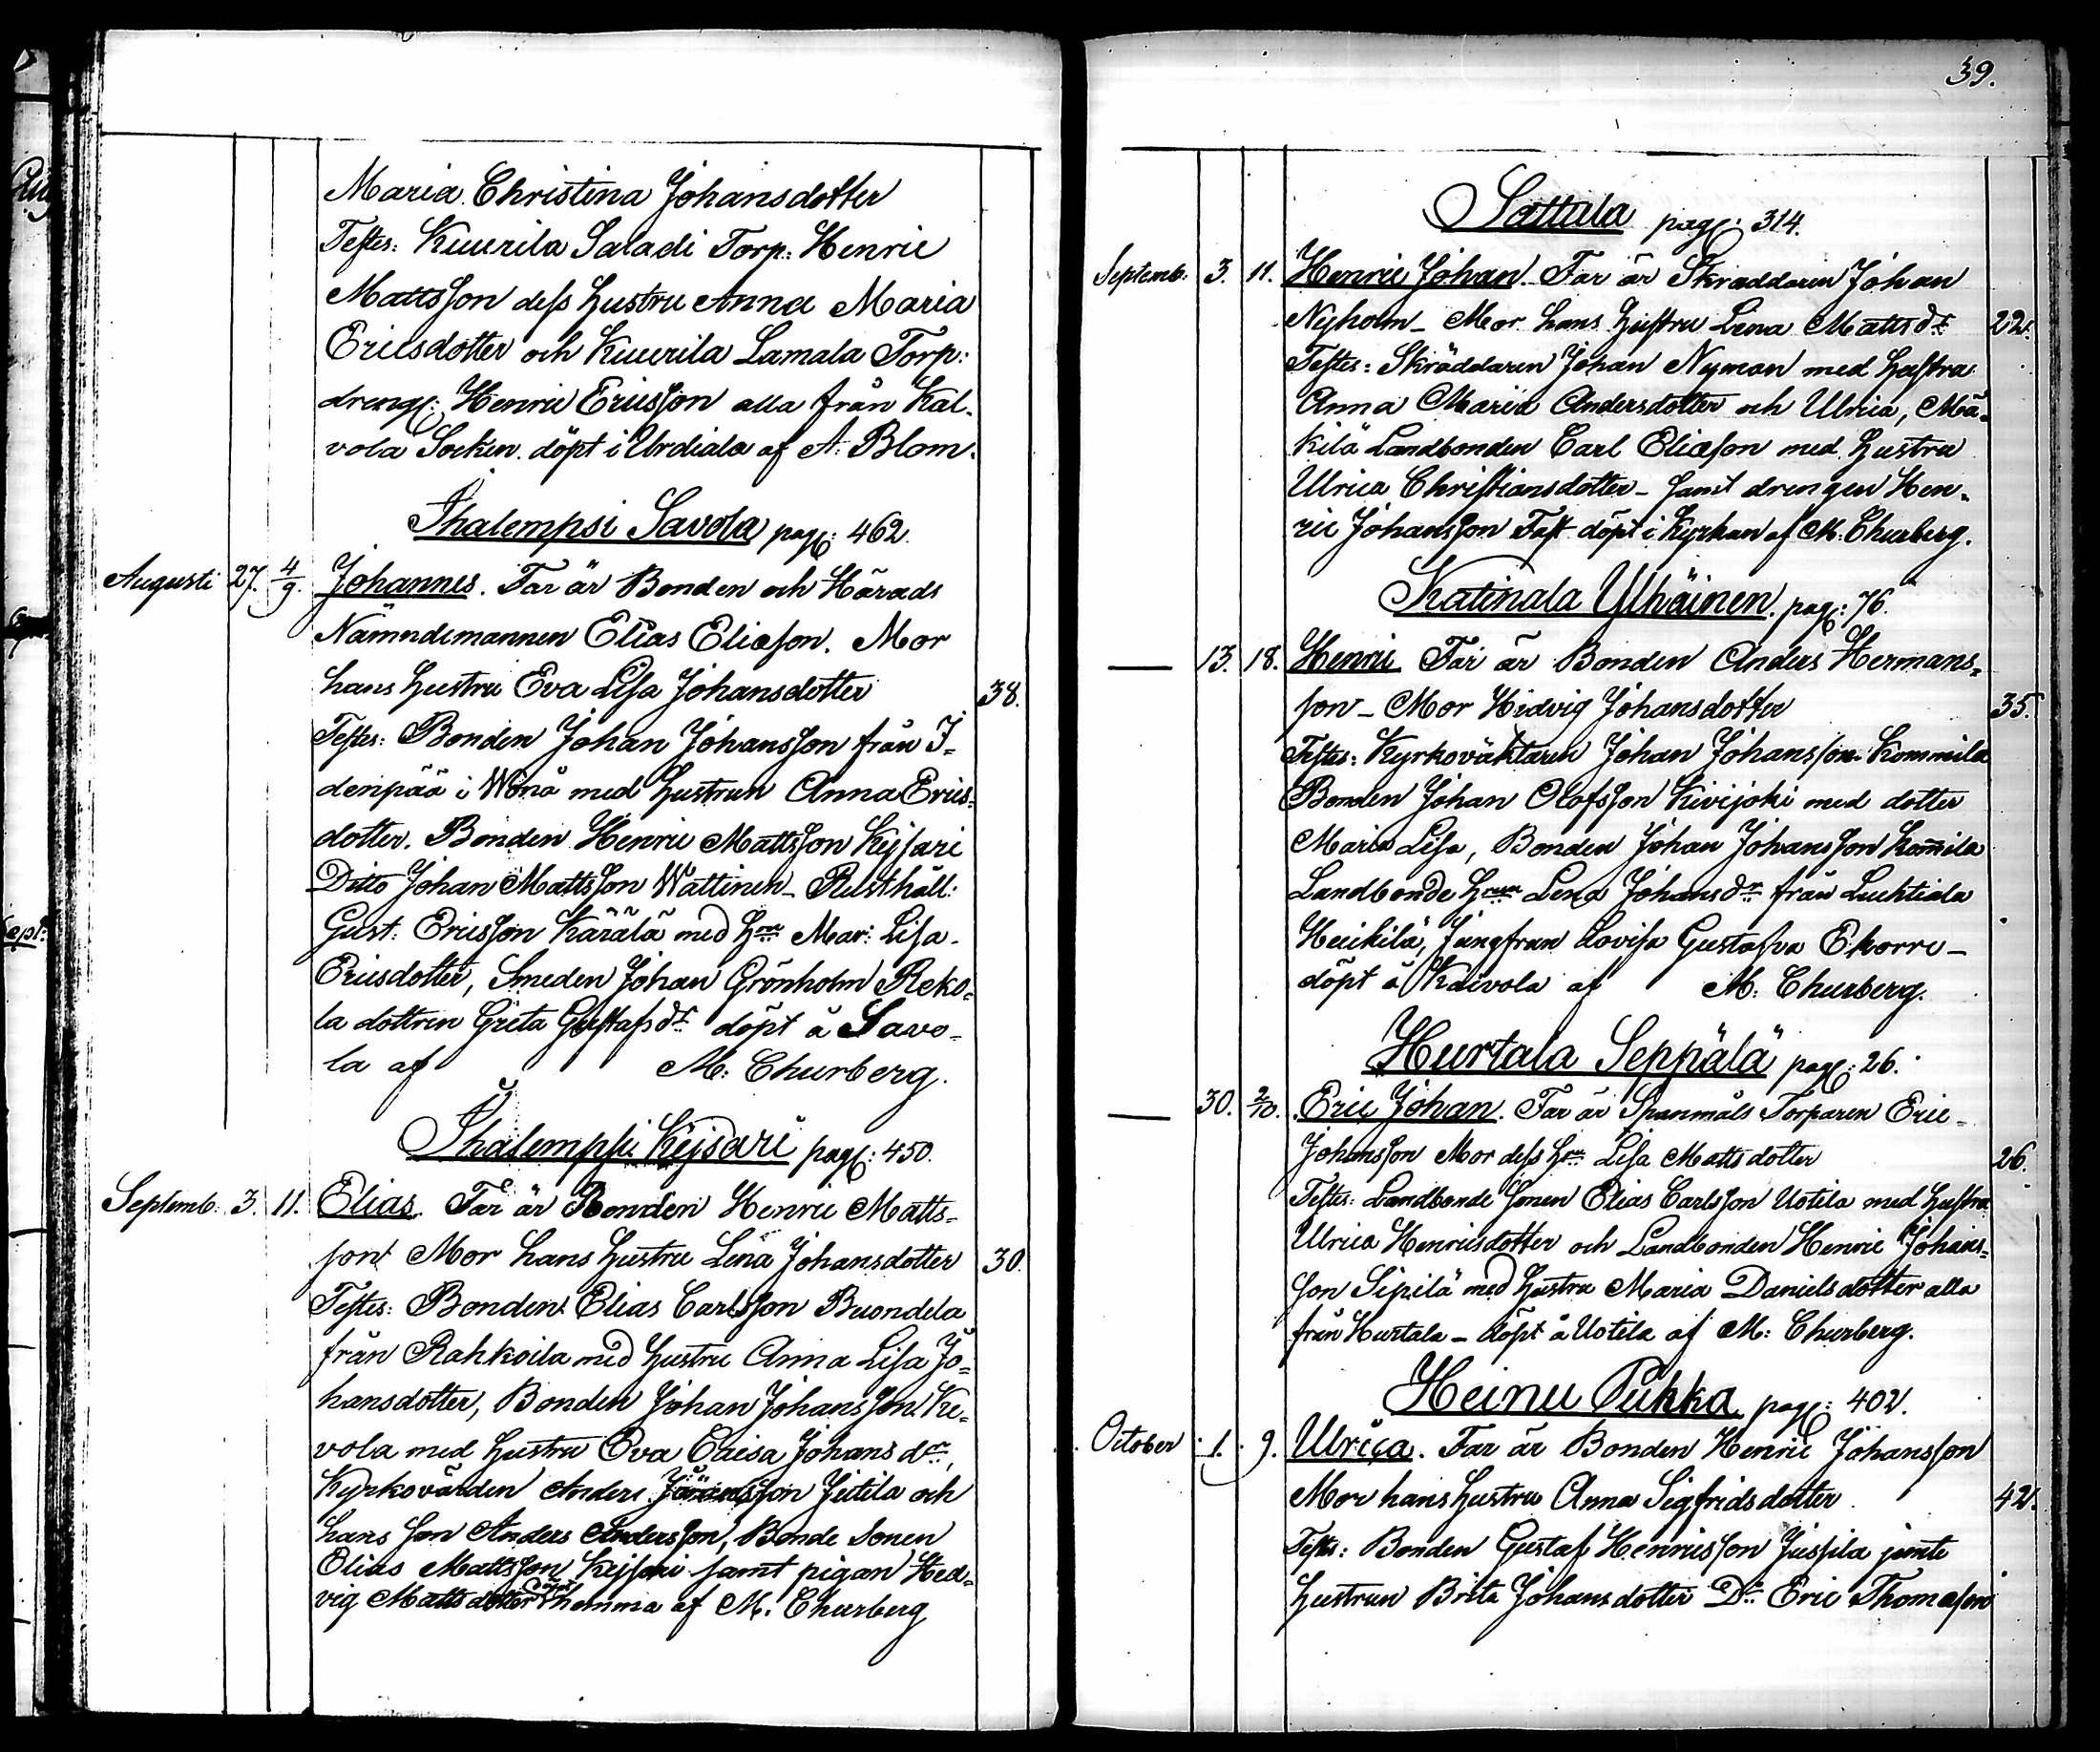 Maria Christina Johansdotter
Testes: Kuurila Saladi Torp: Henric
Mattsson dess hustru Anna Maria
Ericsdotter och Kuurila Lamala Torp:
dreng: Henric Ericsson alla från Kal-
vola Socken. döpt i Urdiala af A: Blom.
Ihalempsi Savola pag: 462.
Augusti 27. 4/9. Johannes. Far är Bonden och Härads
Nämndemannen Elias Eliasson. Mor
hans hustru Eva Lisa Johansdotter 38.
Testes: Bonden Johan Johansson från I-
denpää i Wånå med hustrun Anna Erics-
dotter. Bonden Henric Mattsson Kejsari
Ditto Johan Mattsson Wattinen - Rusthåll:
Gust: Ericsson Kärälä med Hru Mar: Lisa
Ericsdotter, Smeden Johan Grönholm Reko-
la dottren Greta Gustafs dr döpt å Savo-
la af M: Churberg.
Ihalempsi Kejsari pag: 450.
Septemb: 3. 11. Elias. Far är Bonden Henric Matts-
son Mor hans hustru Lena Johansdotter 30.
Testes: Bonden Elias Carlsson Buondela
från Rahkoila med hustru Anna Lisa Jo-
hansdotter, Bonden Johan Johansson Ke-
vola med hustru Eva Caisa Johans dr,
Kyrkovärden Anders Jöransson Jutila och
hans son Anders Andersson, Bonde Sonen
Elias Mattsson Kejsari samt pigan Hed-
vig Mattsdotter döpt hemma af M: Churberg
39.
Sattula pag: 314.
Septemb: 3. 11. Henric Johan. Far är Skräddaren Johan
Nyholm - Mor hans hustru Lena Matts dr 22.
Testes: Skräddaren Johan Nyman med hustru
Anna Maria Andersdotter och Ulrica, Mä-
kilä Landbonden Carl Eliasson med hustru
Ulrica Christiansdotter - samt drengen Hen-
ric Johansson Fast döpt i Kyrkan af M: Churberg.
Katinala Ylhäinen. pag: 76.
— 13. 18. Henric Far är Bonden Anders Hermans-
son - Mor Hedvig Johansdotter 35.
Testes: Kyrkoväktaren Johan Johansson Kommila
Bonden Johan Olofsson Kivijoki med dotter
Maria Lisa, Bonden Johan Johansson Kom̄ila
Landbonde Hrun Lena Johans dr från Luhtiala
Heikilä, Jungfrun Lovisa Gustafva Ekorre -
döpt å Kaivola af M: Churberg.
Hurtala Seppälä pag: 26.
— 30. 2/10. Eric Johan. Far är Spanmåls Torparen Eric
Johansson Mor dess Hru Lisa Mattsdotter 26.
Testes: Landbonde Sonen Elias Carlsson Uotila med hustru
Ulrica Henricsdotter och Landbonden Henric Johans-
son Sipilä med hustru Maria Danielsdotter alla
från Hurtala - döpt å Uotila af M: Churberg.
Heinu Puhka pag: 402.
October 1. 9. Ulrica. Far är Bonden Henric Johansson
Mor hans hustru Anna Sigfridsdotter 42.
Testes: Bonden Gustaf Henricsson Jussila jemte
hustrun Brita Johansdotter Do Eric Thomasson